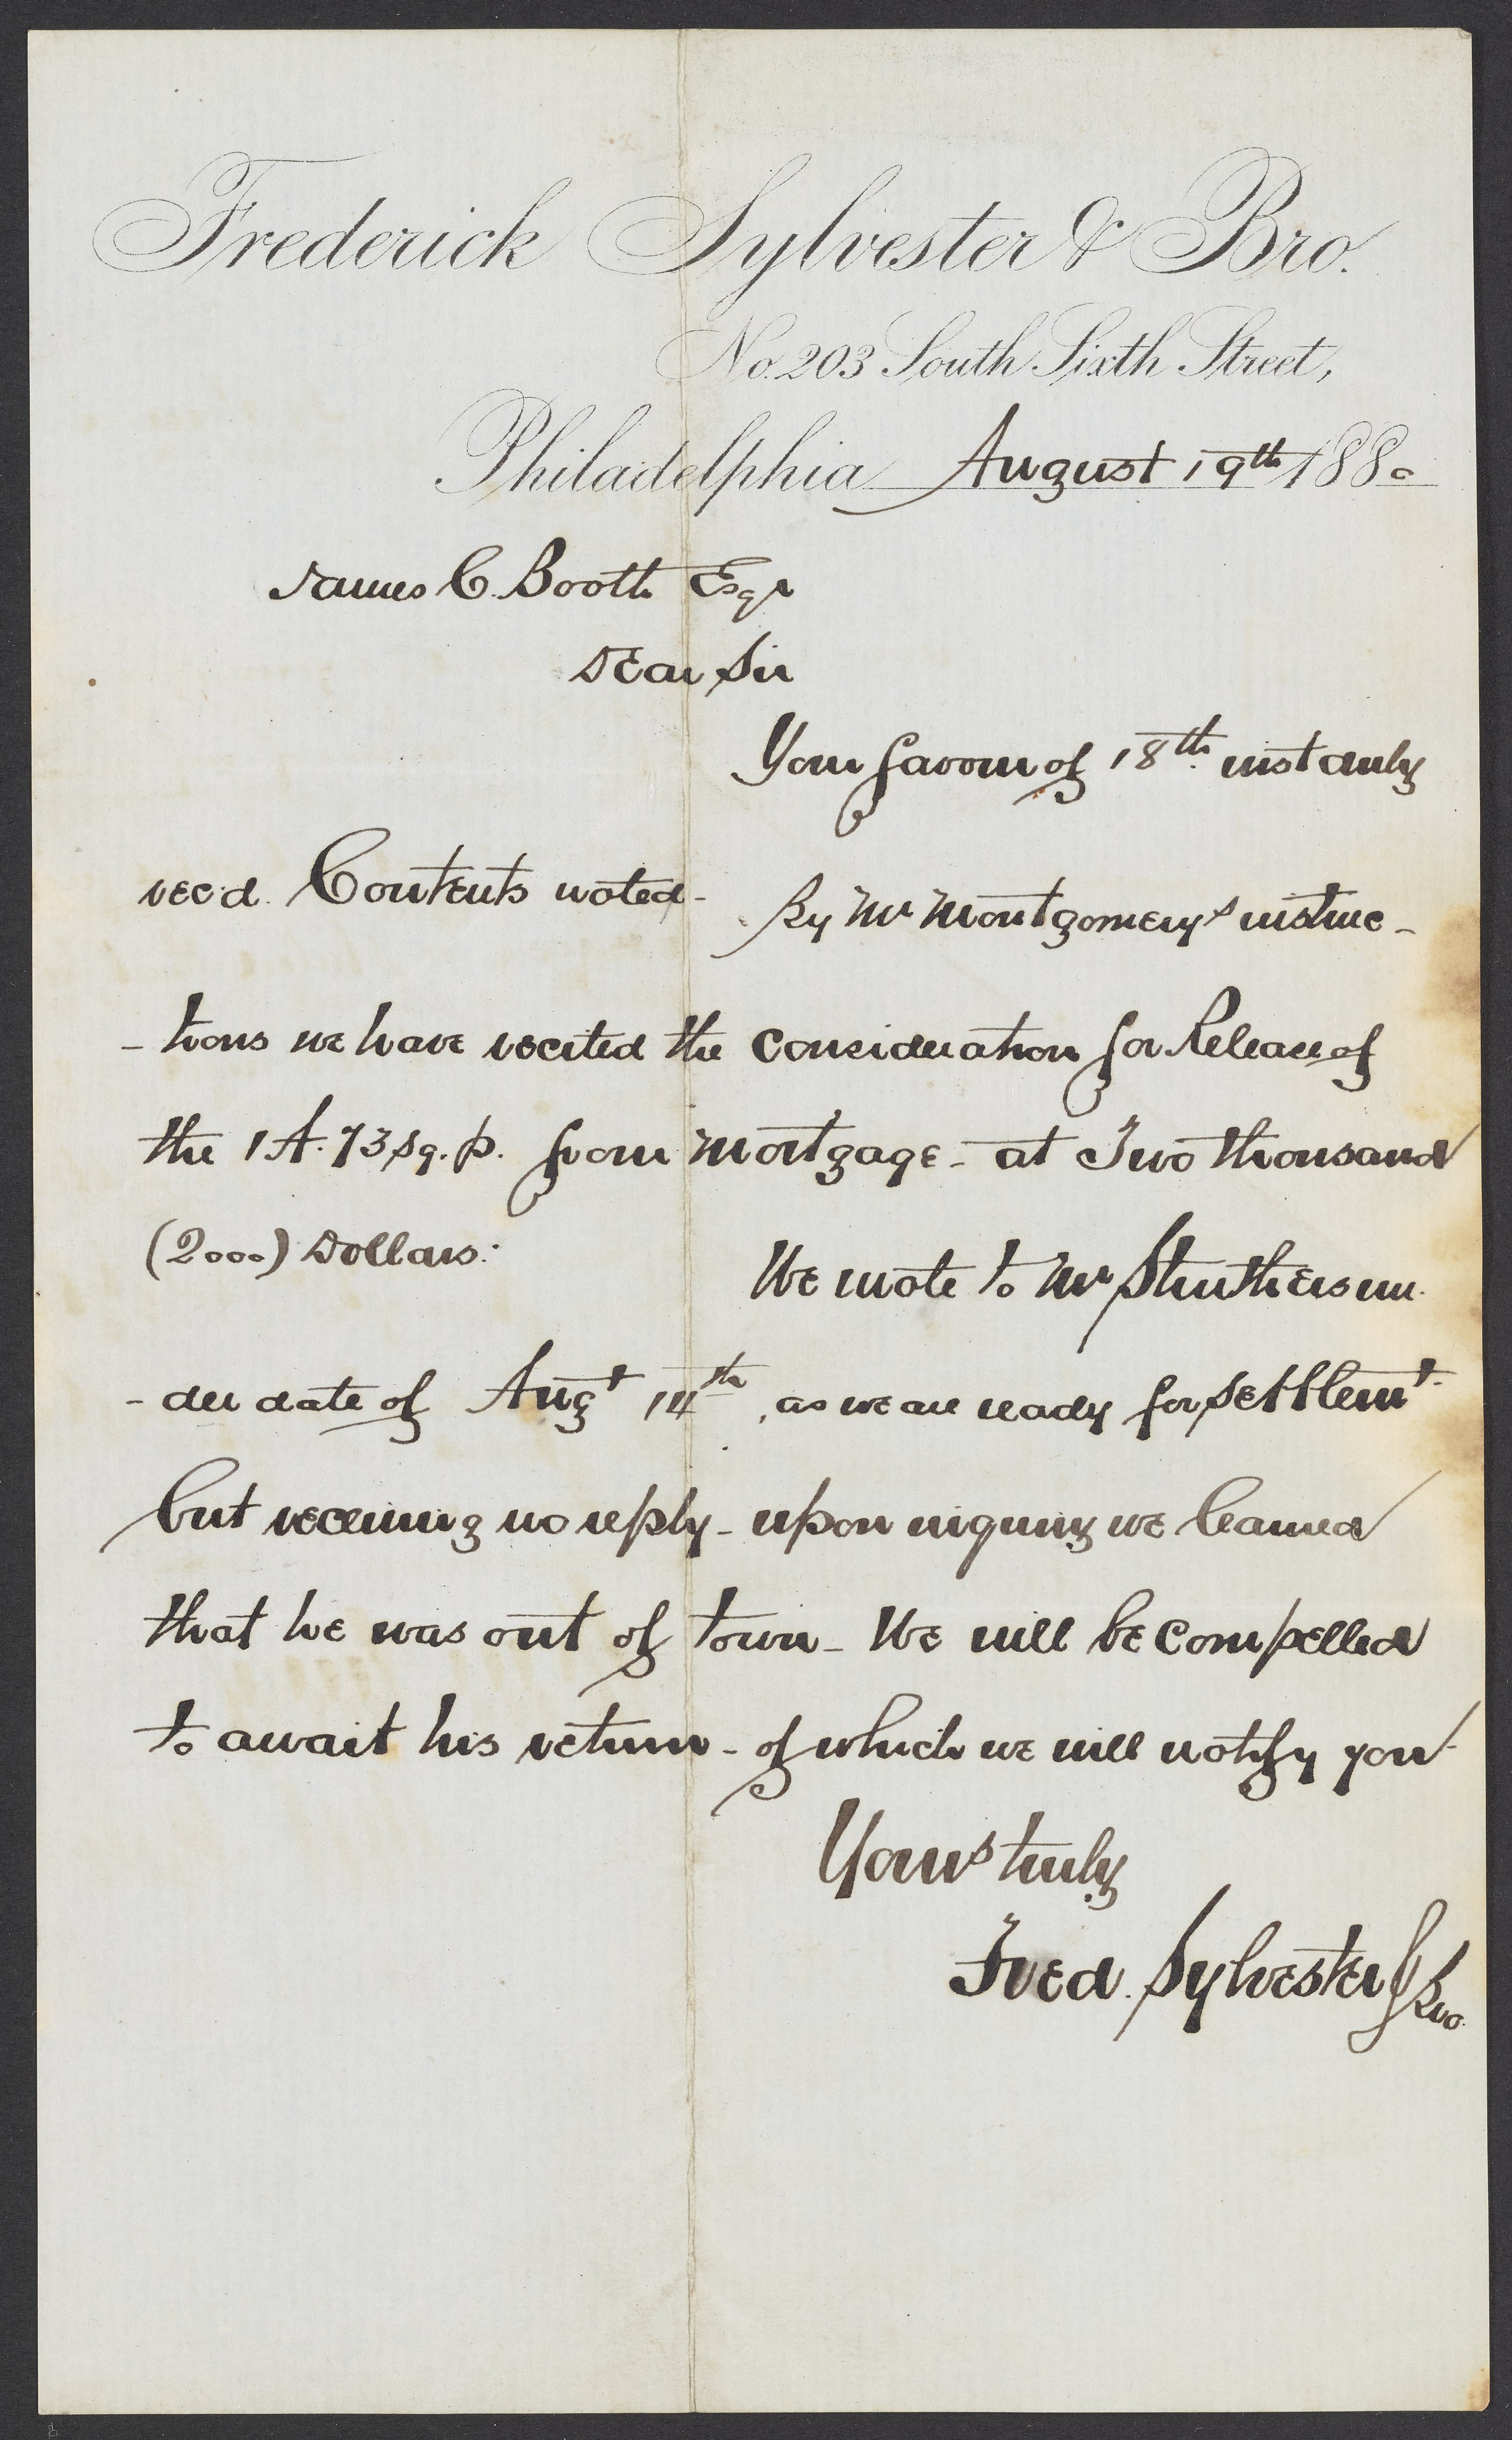 Frederick Sylvester & Bro.
No. 203 South Sixth Street,
Philadelphia August 19th 1880
James C. Booth Esqr
Dear Sir
Your favour of 18th inst duly
rec'd. Contents noted -
By Mr Montgomerys instruc -
- tions we have recited the consideration for Release of
the 1 A. 73 sq. p. from mortgage - at Two thousand
(2000) Dollars.
We wrote to Mr Struthers un -
- der date of Augt 14th, as we are ready for settlemt.
but receiving no reply - upon inquiry we learned
that he was out of town - We will be compelled
to await his return - of which we will notify you
Yours truly
Fred. Sylvester & Bro.